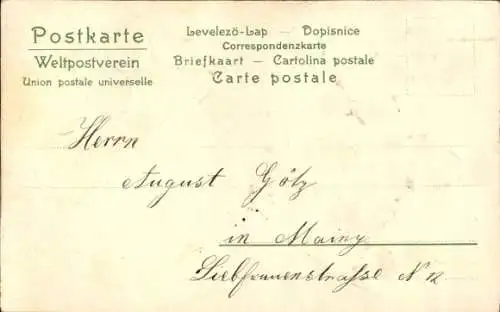 Postkarte
Weltpostverein
Union postale universelle
Levelezö-Lap — Dopisnice
Correspondenzkarte
Briefkaart — Cartolina postale
Carte postale
Herrn
August Götz
in Mainz
Liebfrauenstrasse N 12